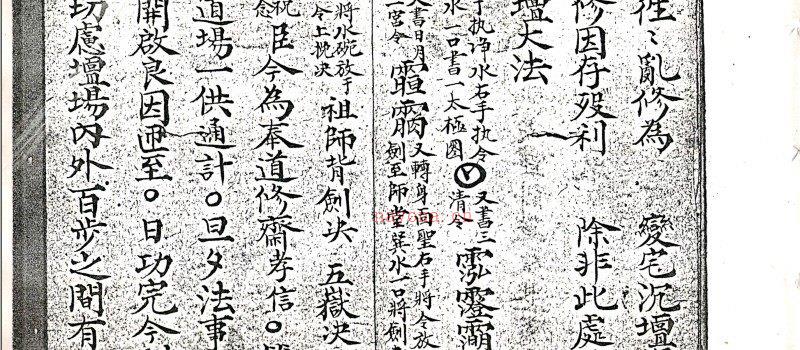 徃〻亂修為 變宅沉壇
修因存歿利 除非此處
壇大法
手执净水右手执令 又書三
水一口書一太極圖 清令
又書日月 又轉身面聖右手將令放
一宫令 劍至師堂巽水一口將劍
將水碗放于
令上挽决 祖師背劍决 五嶽决
祝
念 臣今為奉道修齋孝信○
道場一供通計○旦夕法事
開啟良因迊至○日功完今
切慮壇場內外百步之間有